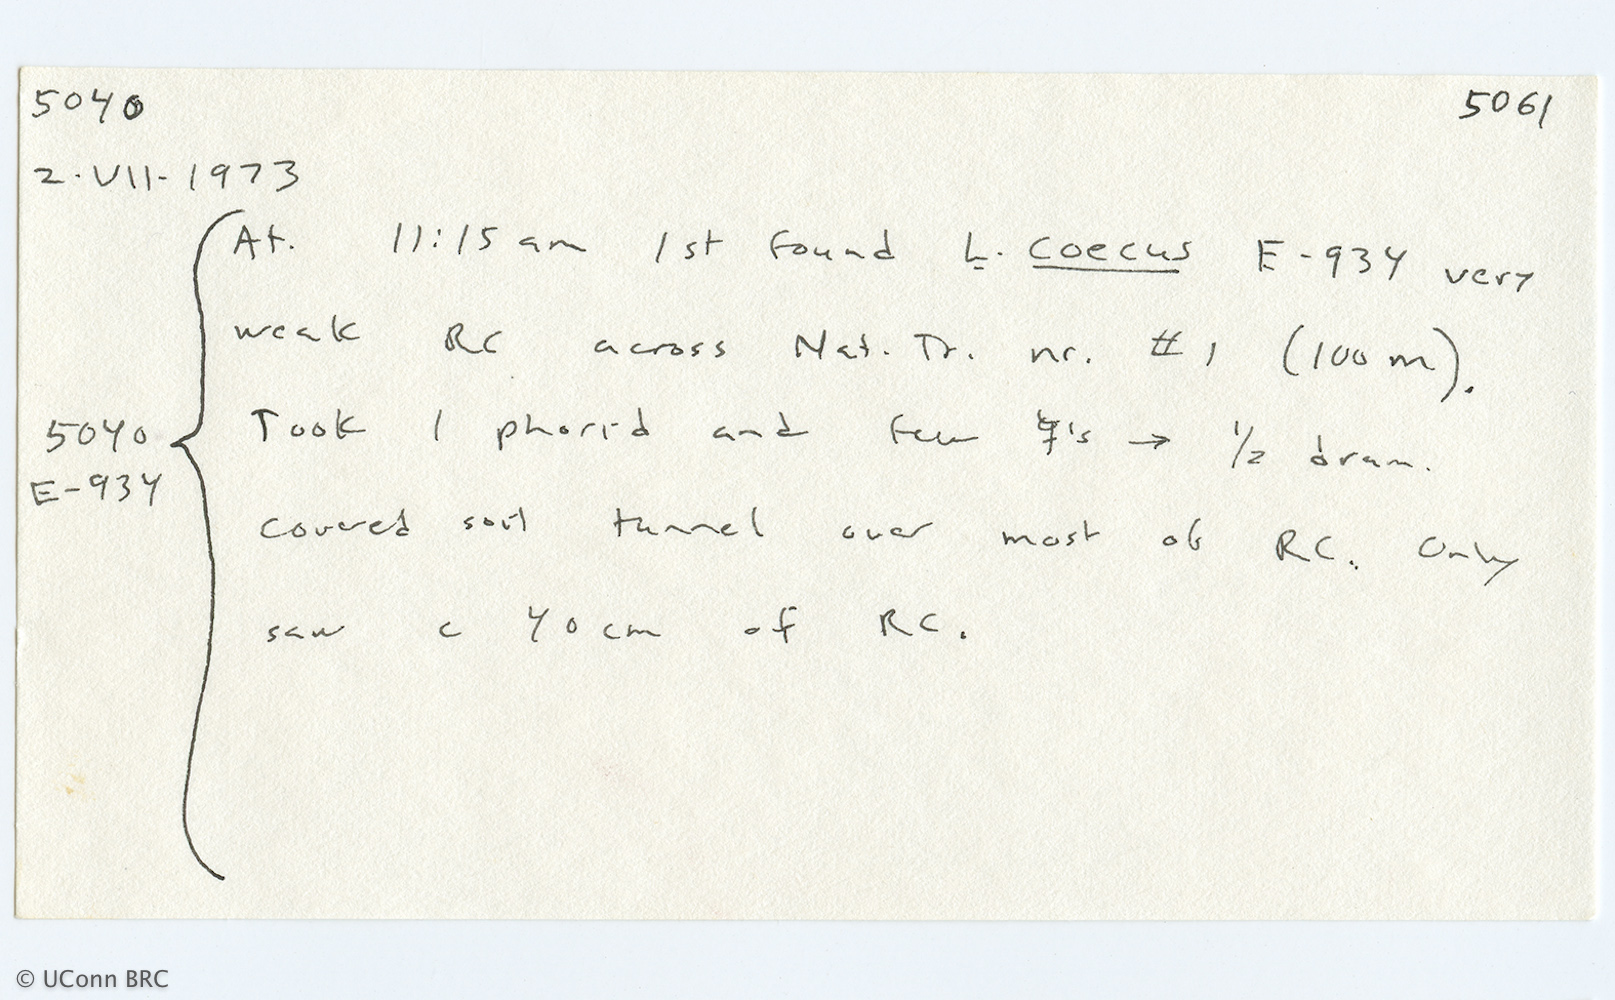 5040 5061
2·VII-1973
At. 11:15 am 1st found L. coecus E-934 very
weak RC across Nat. Tr. nr. #1 (100 m).
5040 Took 1 phorid and few ☿'s → 1/2 dram.
E-934
covered soil tunnel over most of RC. Only
saw c 40 cm of RC.
© UConn BRC